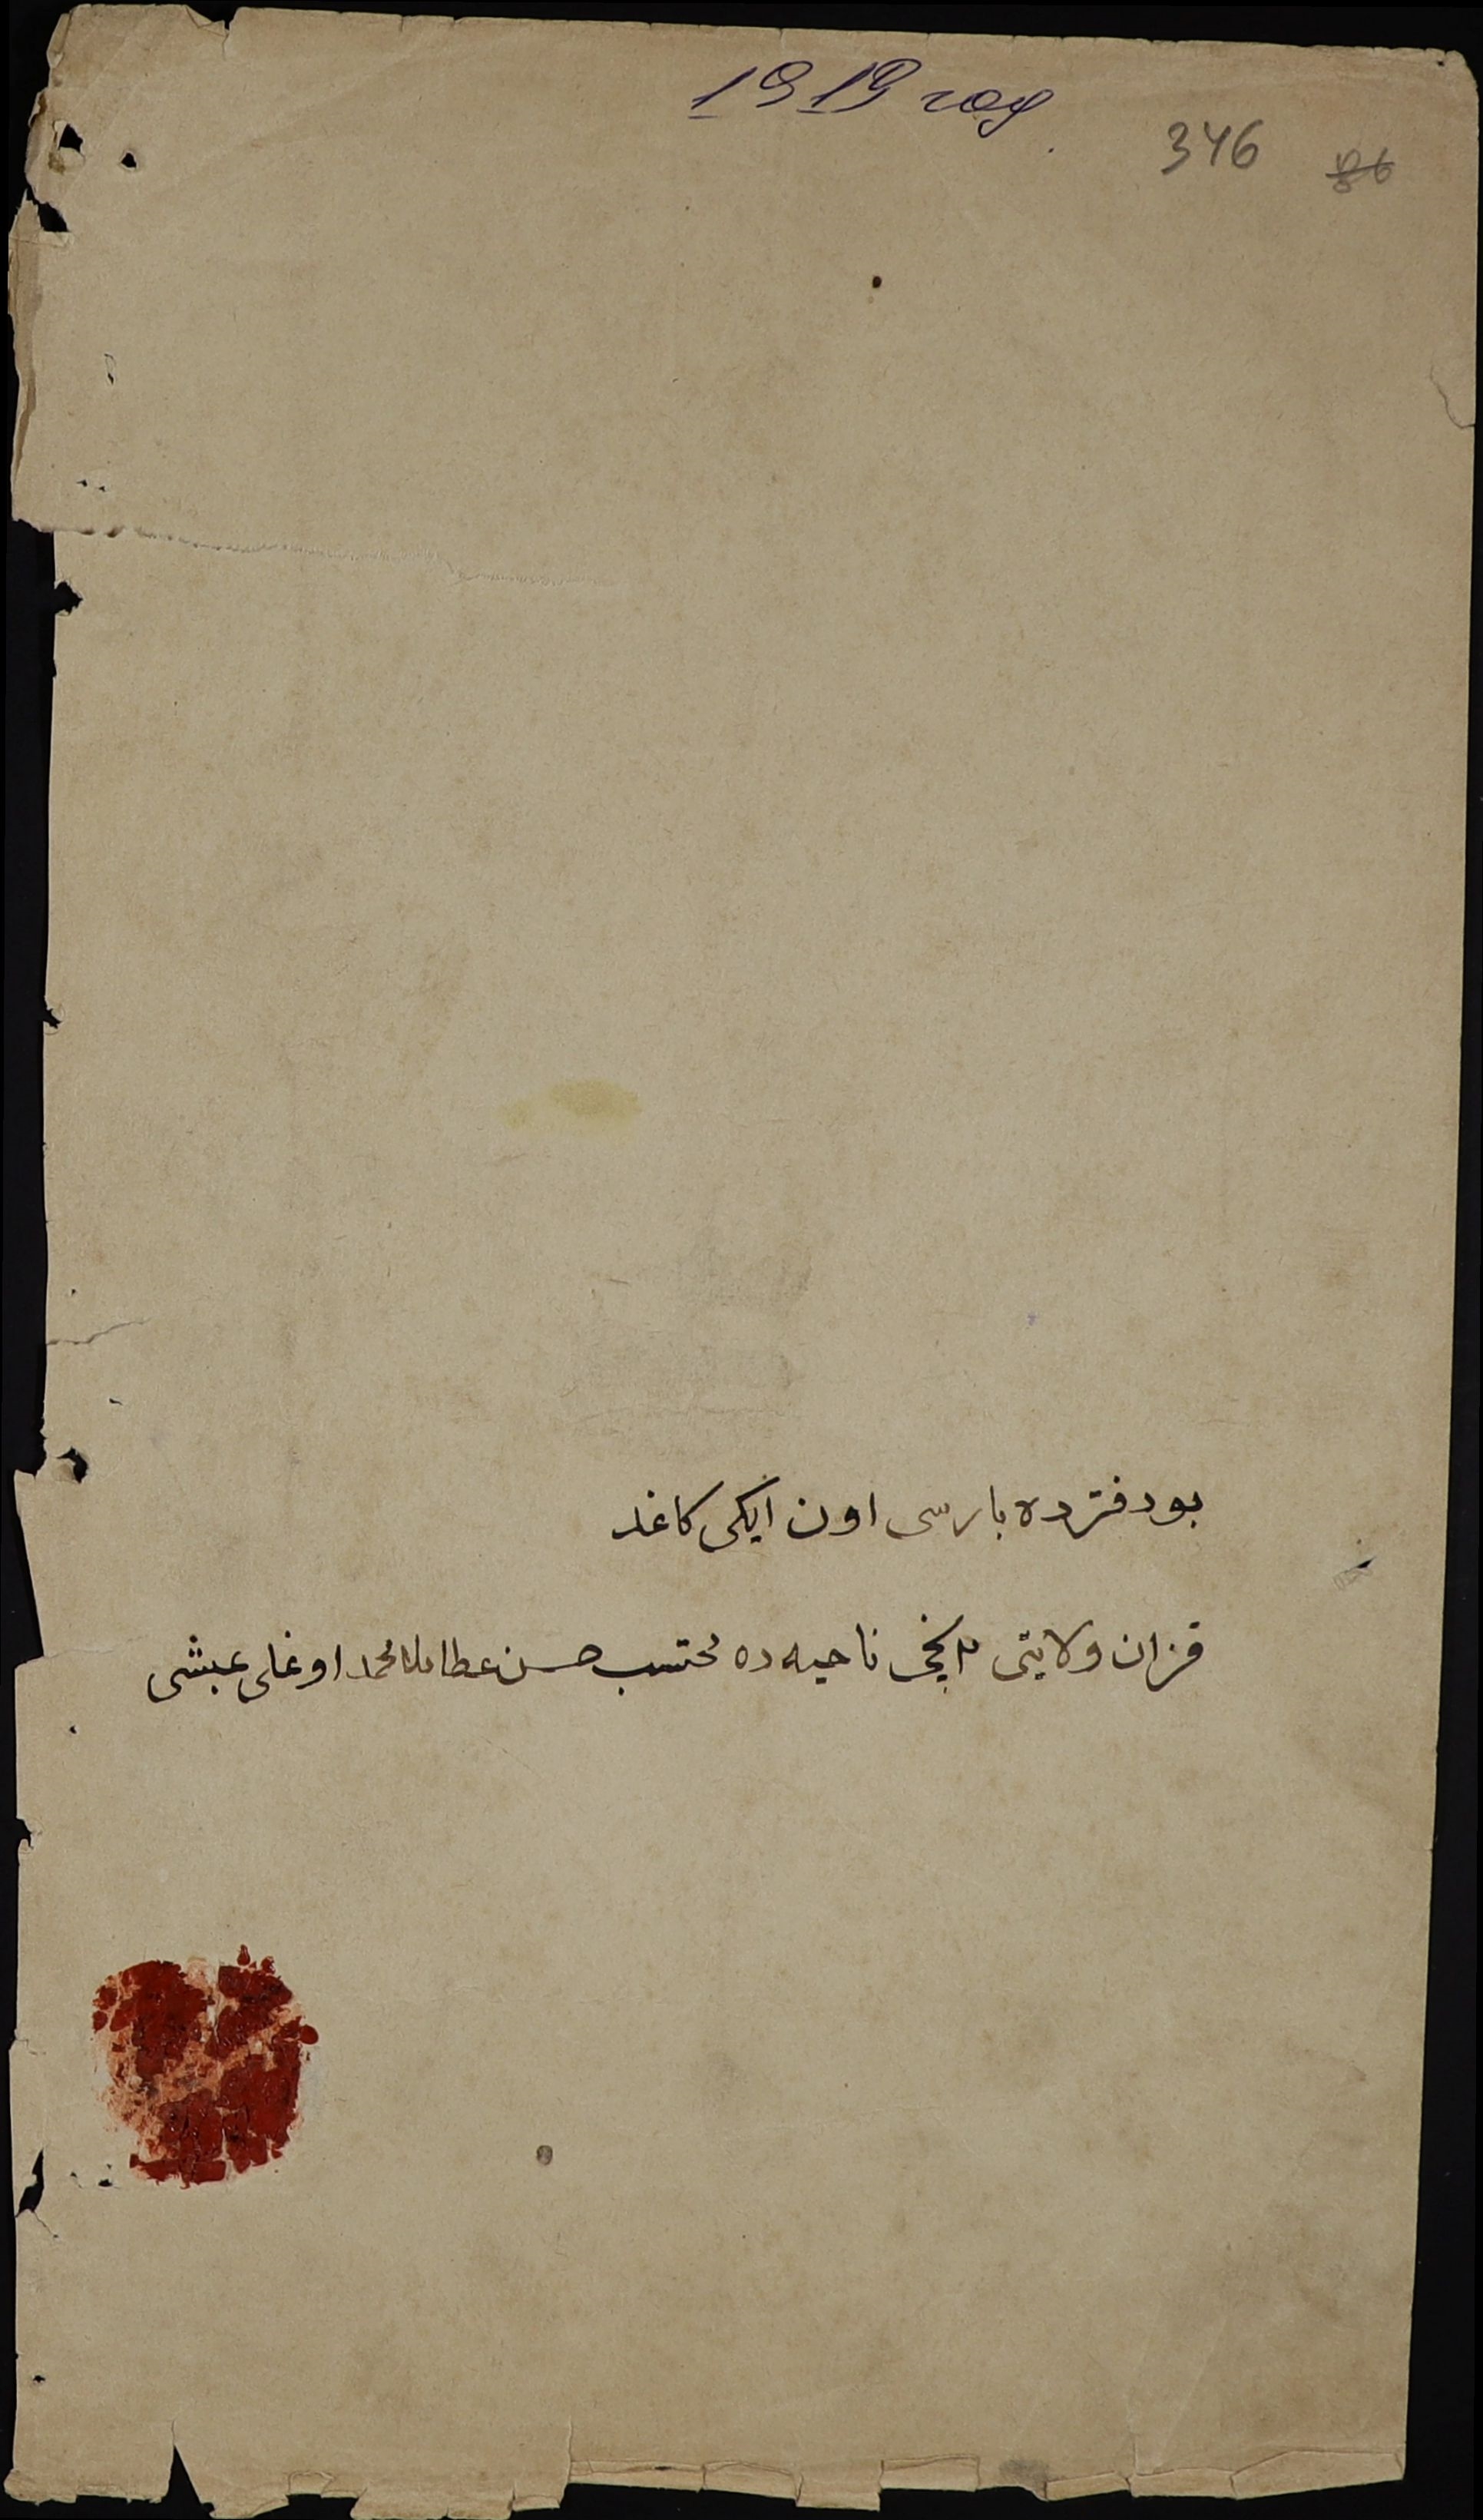 1919 год
346
بو دفترده بارسی اون ایکی کاغد
قزان ولایتی ٣ نچی ناحیه ده محتسب حسن عطا ملا محمد اوغلی عبشی